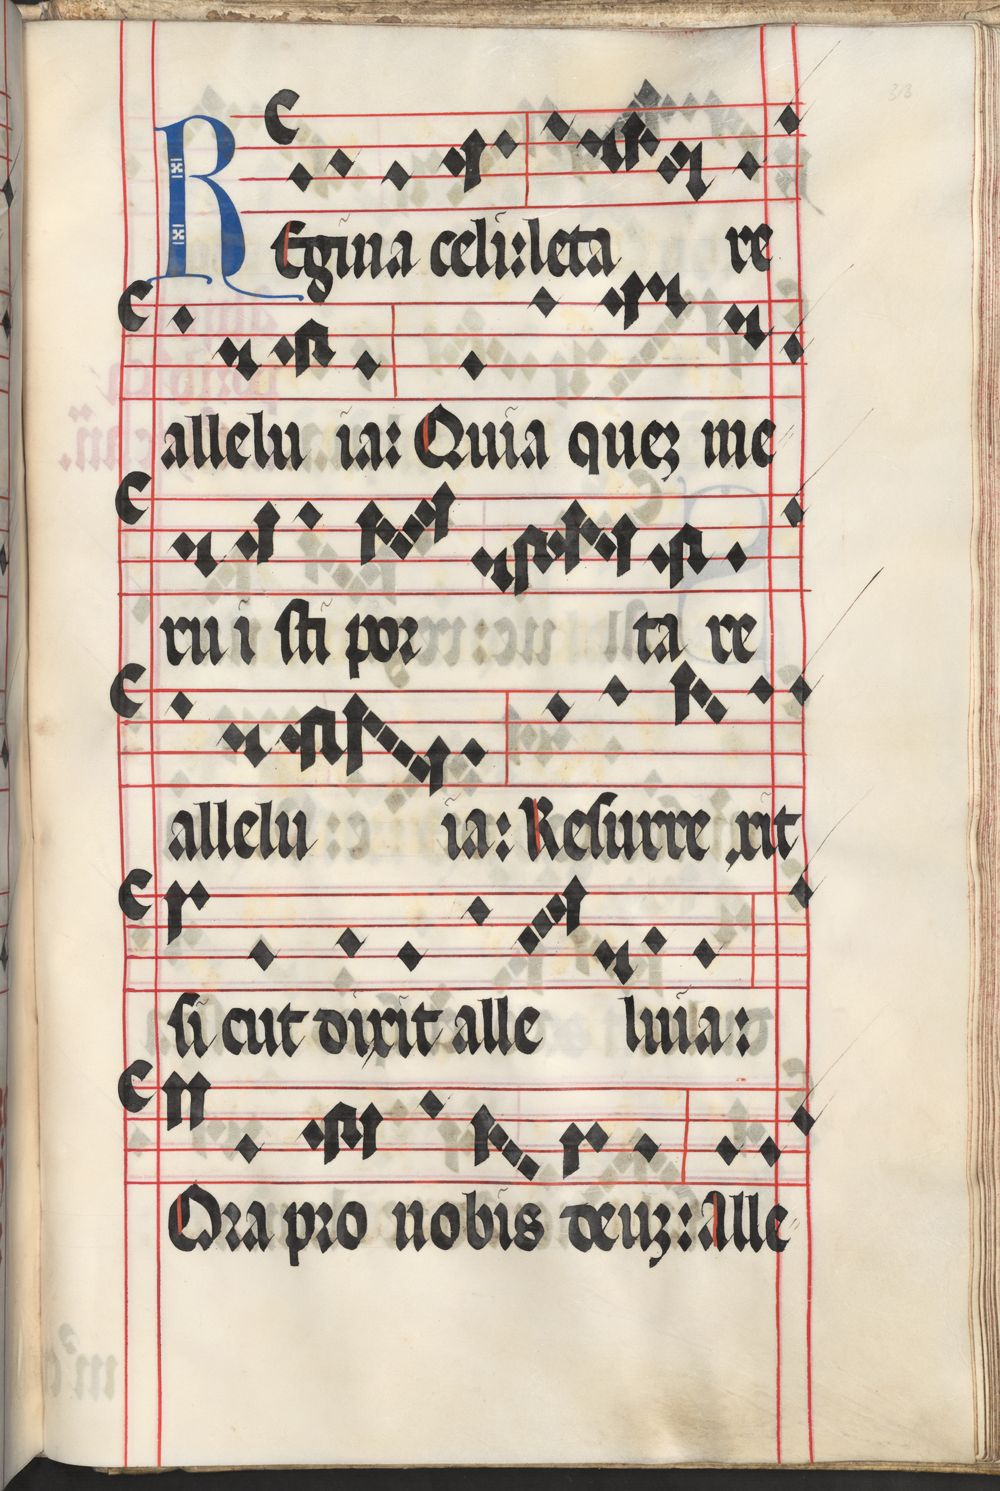 REgina celi: leta re
allelu ia: Quia quez me
ru i sti por ta re
allelu ia: Resurre xit
si cut dixit alle luia:
Ora pro nobis deuz: Alle